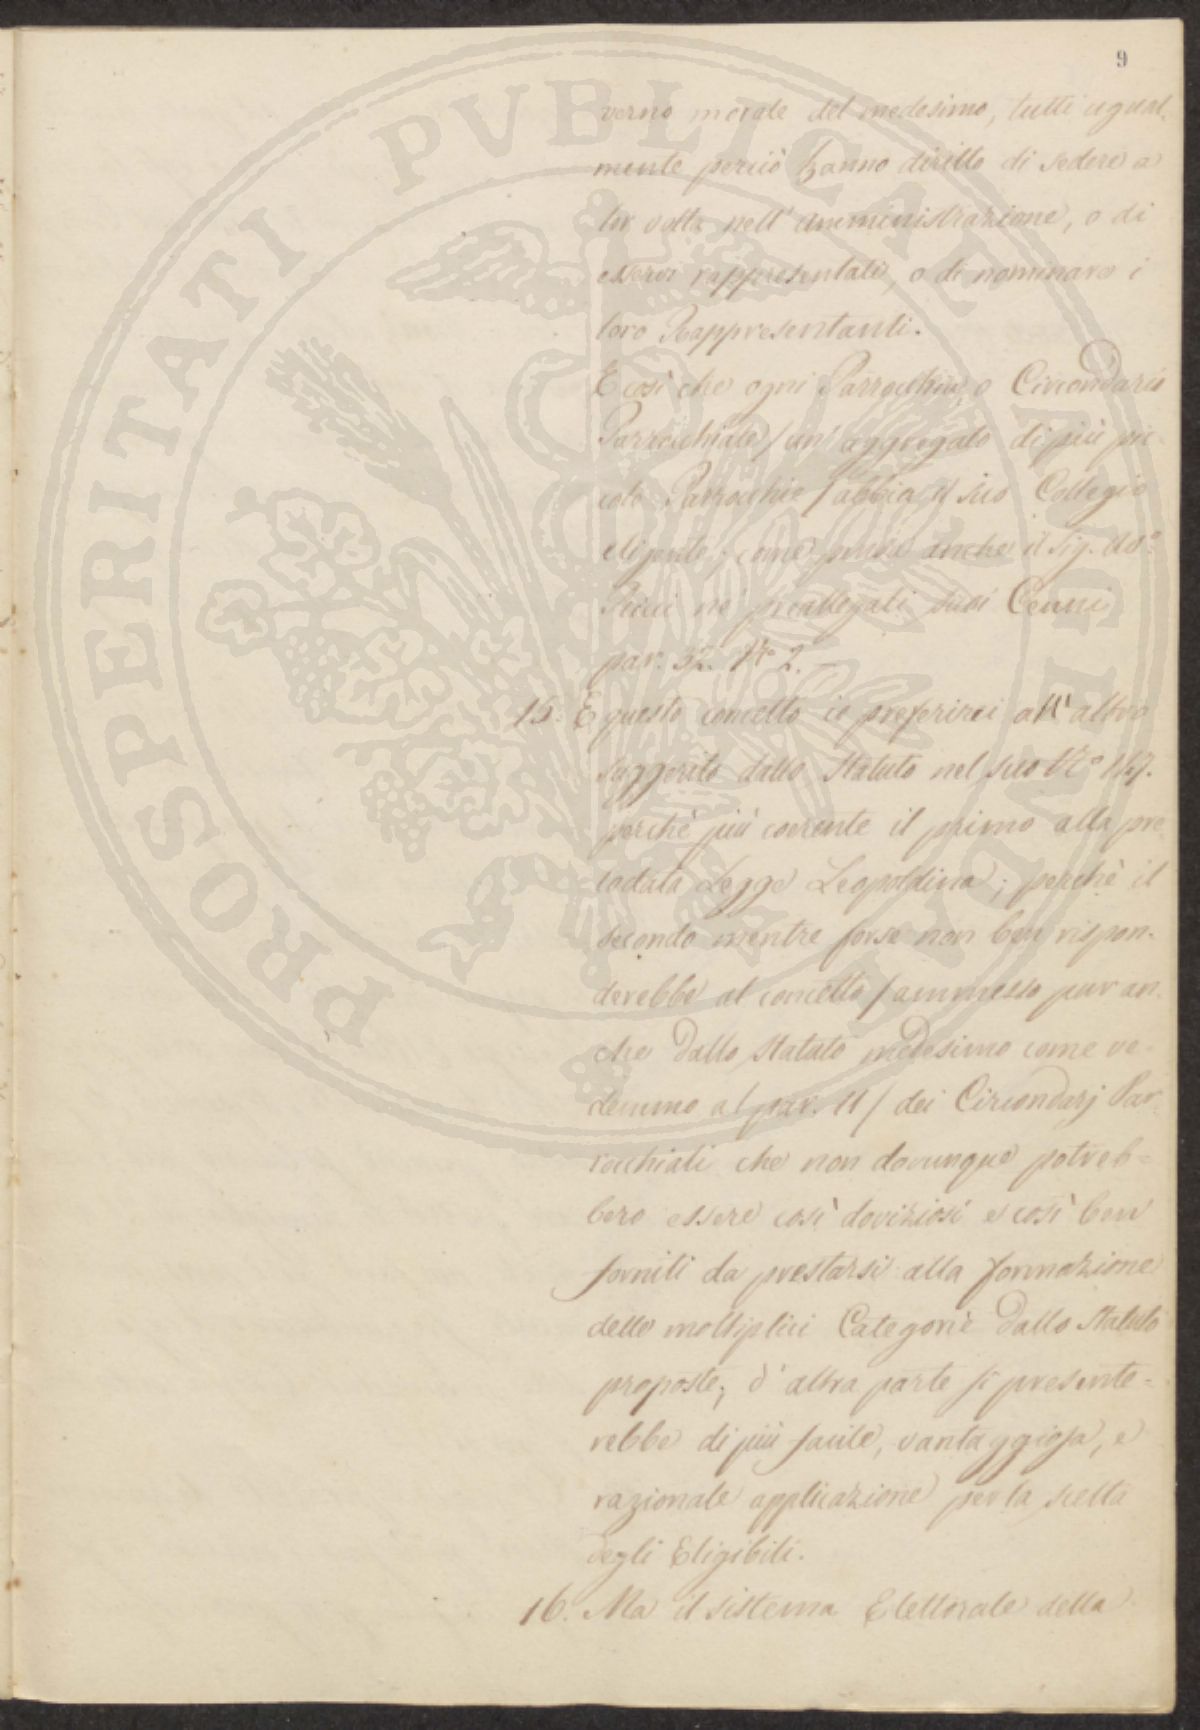 9
verno morale del medesimo, tutti ugual-
mente perciò hanno diritto di sedere a
lor volta nell' amministrazione, o di
esservi rappresentati, o di nominare i
loro Rappresentanti.
E così che ogni Parrocchia, o Circondario
Parrocchiale / un' aggregato di più pic-
cole Parrocchie / abbia il suo Collegio
eligente; come pensa anche il Sig.
ne' preallegati suoi Cenni
par. 32. N.º 2. —
15. E questo concetto io preferirei all' altro
suggerito dallo Statuto nel suo
perchè più coerente il primo alla pre-
lodata Legge Leopoldina; perchè il
secondo mentre forse non ben rispon-
derebbe al concetto / ammesso pur an-
che dallo Statuto medesimo come ve-
demmo al par. 11 / dei Circondarj Par-
rocchiali che non dovunque potreb-
bero essere così doviziosi e così ben
forniti da prestarsi alla formazione
delle moltiplici Categorie dallo Statuto
proposte, d' altra parte si presente-
rebbe di più facile, vantaggiosa, e
razionale applicazione per la scelta
degli Eligibili.
16. Ma il sistema Elettorale della
PROSPERITATI PVBLICAE AVGENDAE